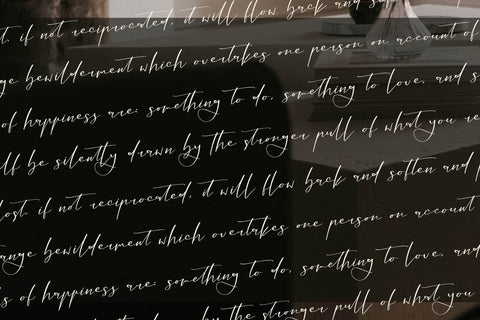 st. if not reciprocated, it will flow back and sof
nge bewilderment which overtakes one person on account of
of happiness are: something to do, something to love, and s
ll be silently drawn by the stronger pull of what you re
lost. if not reciprocated, it will flow back and soften and p
ange bewilderment which overtakes one person on account
s of happiness are: something to do, something to love, and
be silently drawn by the stronger pull of what you